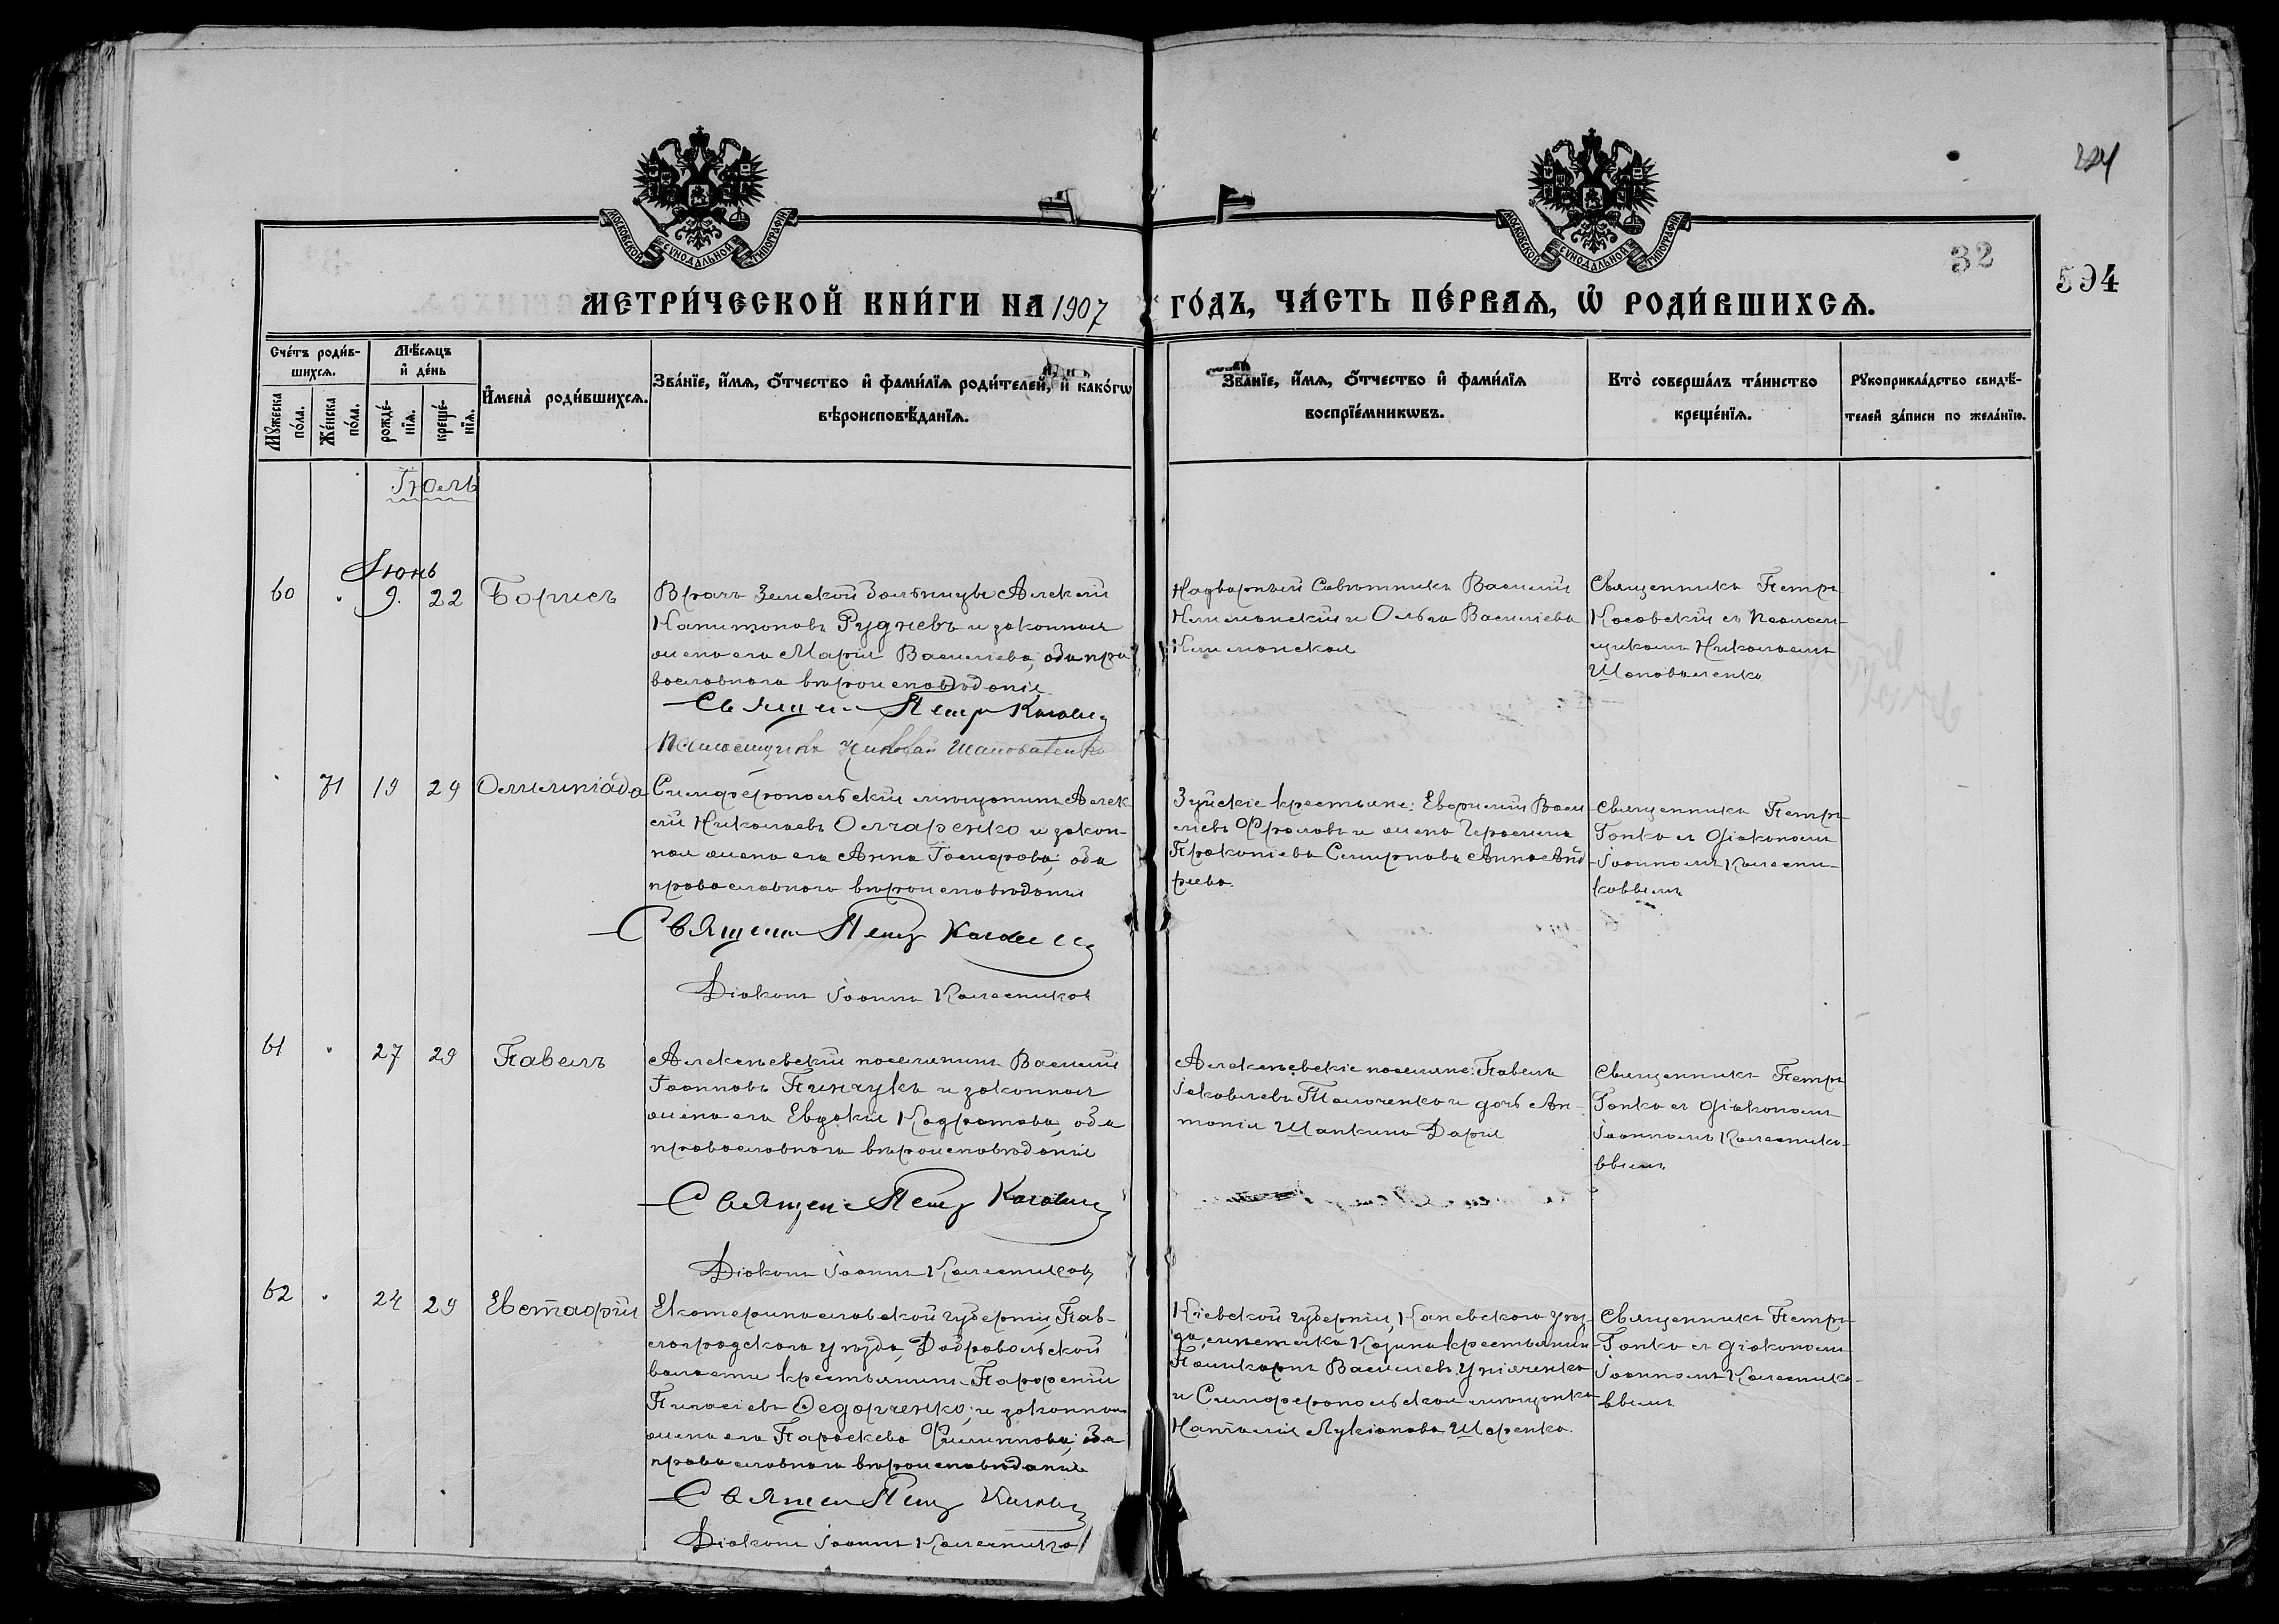 224
МОСКОВСКОЙ СѴНОДАЛЬНОЙ ТИПОГРАФІИ
МОСКОВСКОЙ СѴНОДАЛЬНОЙ ТИПОГРАФІИ
32
594
МЕТРИ́ЧЕСКОЙ КНИ́ГИ НА 1907 ГО́ДЪ, ЧА́СТЬ ПЕ́РВАѦ, Ѡ҆ РОДИ́ВШИХСѦ.
Сче́тъ роди́в-
шихсѧ.
Мѣ́сѧцъ
и҆ де́нь
Мꙋ́жеска
по́ла.
Же́нска
по́ла.
рожде́-
нїѧ.
креще́-
нїѧ.
И҆мена̀ роди́вшихсѧ.
Зва́нїе, и҆́мѧ, ѻ҆́тчество и҆ фами́лїѧ роди́телей, и҆ како́гѡ
вѣроисповѣ́данїѧ.
Зва́нїе, и҆́мѧ, ѻ҆́тчество и҆ фами́лїѧ
воспрїе́мникѡвъ.
Кто̀ соверша́лъ та́инство
креще́нїѧ.
Рꙋкоприкла́дство свидѣ́-
телей за́писи по жела́нїю.
Іюль
Іюнь
60 " 9. 22 Борисъ
Врачъ Земской Больницы Алексій
Капитоновъ Рудневъ и законная
жена его Марія Васильева, оба пра
вославнаго вѣроисповѣданія
Священ Петръ Косовскій
Псаломщикъ Николай Шаповаленко
Надворный Совѣтникъ Василій
Климанскій и Ольга Василіева
Климанская
Священникъ Петръ
Косовскій съ Псалом-
щикомъ Николаемъ
Шаповаленко
" 71 19 29 Олимпіада
Симферопольскій мѣщанинъ Алек-
сій Николаевъ Овчаренко и закон-
ная жена его Анна Іосифова, оба
православнаго вѣроисповѣданія
Священ Петръ Косовскій
Діаконъ Іоаннъ Колесниковъ
Зуйскіе крестьяне: Евфимій Васи
ліевъ Фроловъ и жена Герасима
Прокопіева Смирнова Анна Анд
реева.
Священникъ Петръ
съ Діакономъ
Іоанномъ Колесни-
ковымъ
61 " 27 29 Павелъ
Алексѣевскій поселянинъ Василій
Іоанновъ Пинчукъ и законная
жена его Евдокія Кодратова, оба
православнаго вѣроисповѣданія
Священ Петръ Косовскій
Діаконъ Іоаннъ Колесниковъ
Алексѣевскіе поселяне: Павелъ
Іаковлевъ Толоченко и дочь Ан-
тонія Шапкина Дарія
Священникъ Петръ
съ Діакономъ
Іоанномъ Колеснико-
вымъ
62 " 24 29 Евстафій
Екатеринославской губерніи, Пав-
лоградскаго уѣзда, Добровольской
волости крестьянинъ Парфеній
Федорченко, и законная
жена его Параскева Филиппова, оба
православнаго вѣроисповѣданія
Священ Петръ Косовскій
Діаконъ Іоаннъ Колесников
Кіевской губерніи, Каневскаго уѣз-
да, мѣстечка Козина крестьянинъ
Поликарпъ Васильевъ
и Симферопольская мѣщанка
Наталія Лукіанова Шаренко.
Священникъ Петръ
съ діакономъ
Іоанномъ Колеснико-
вымъ